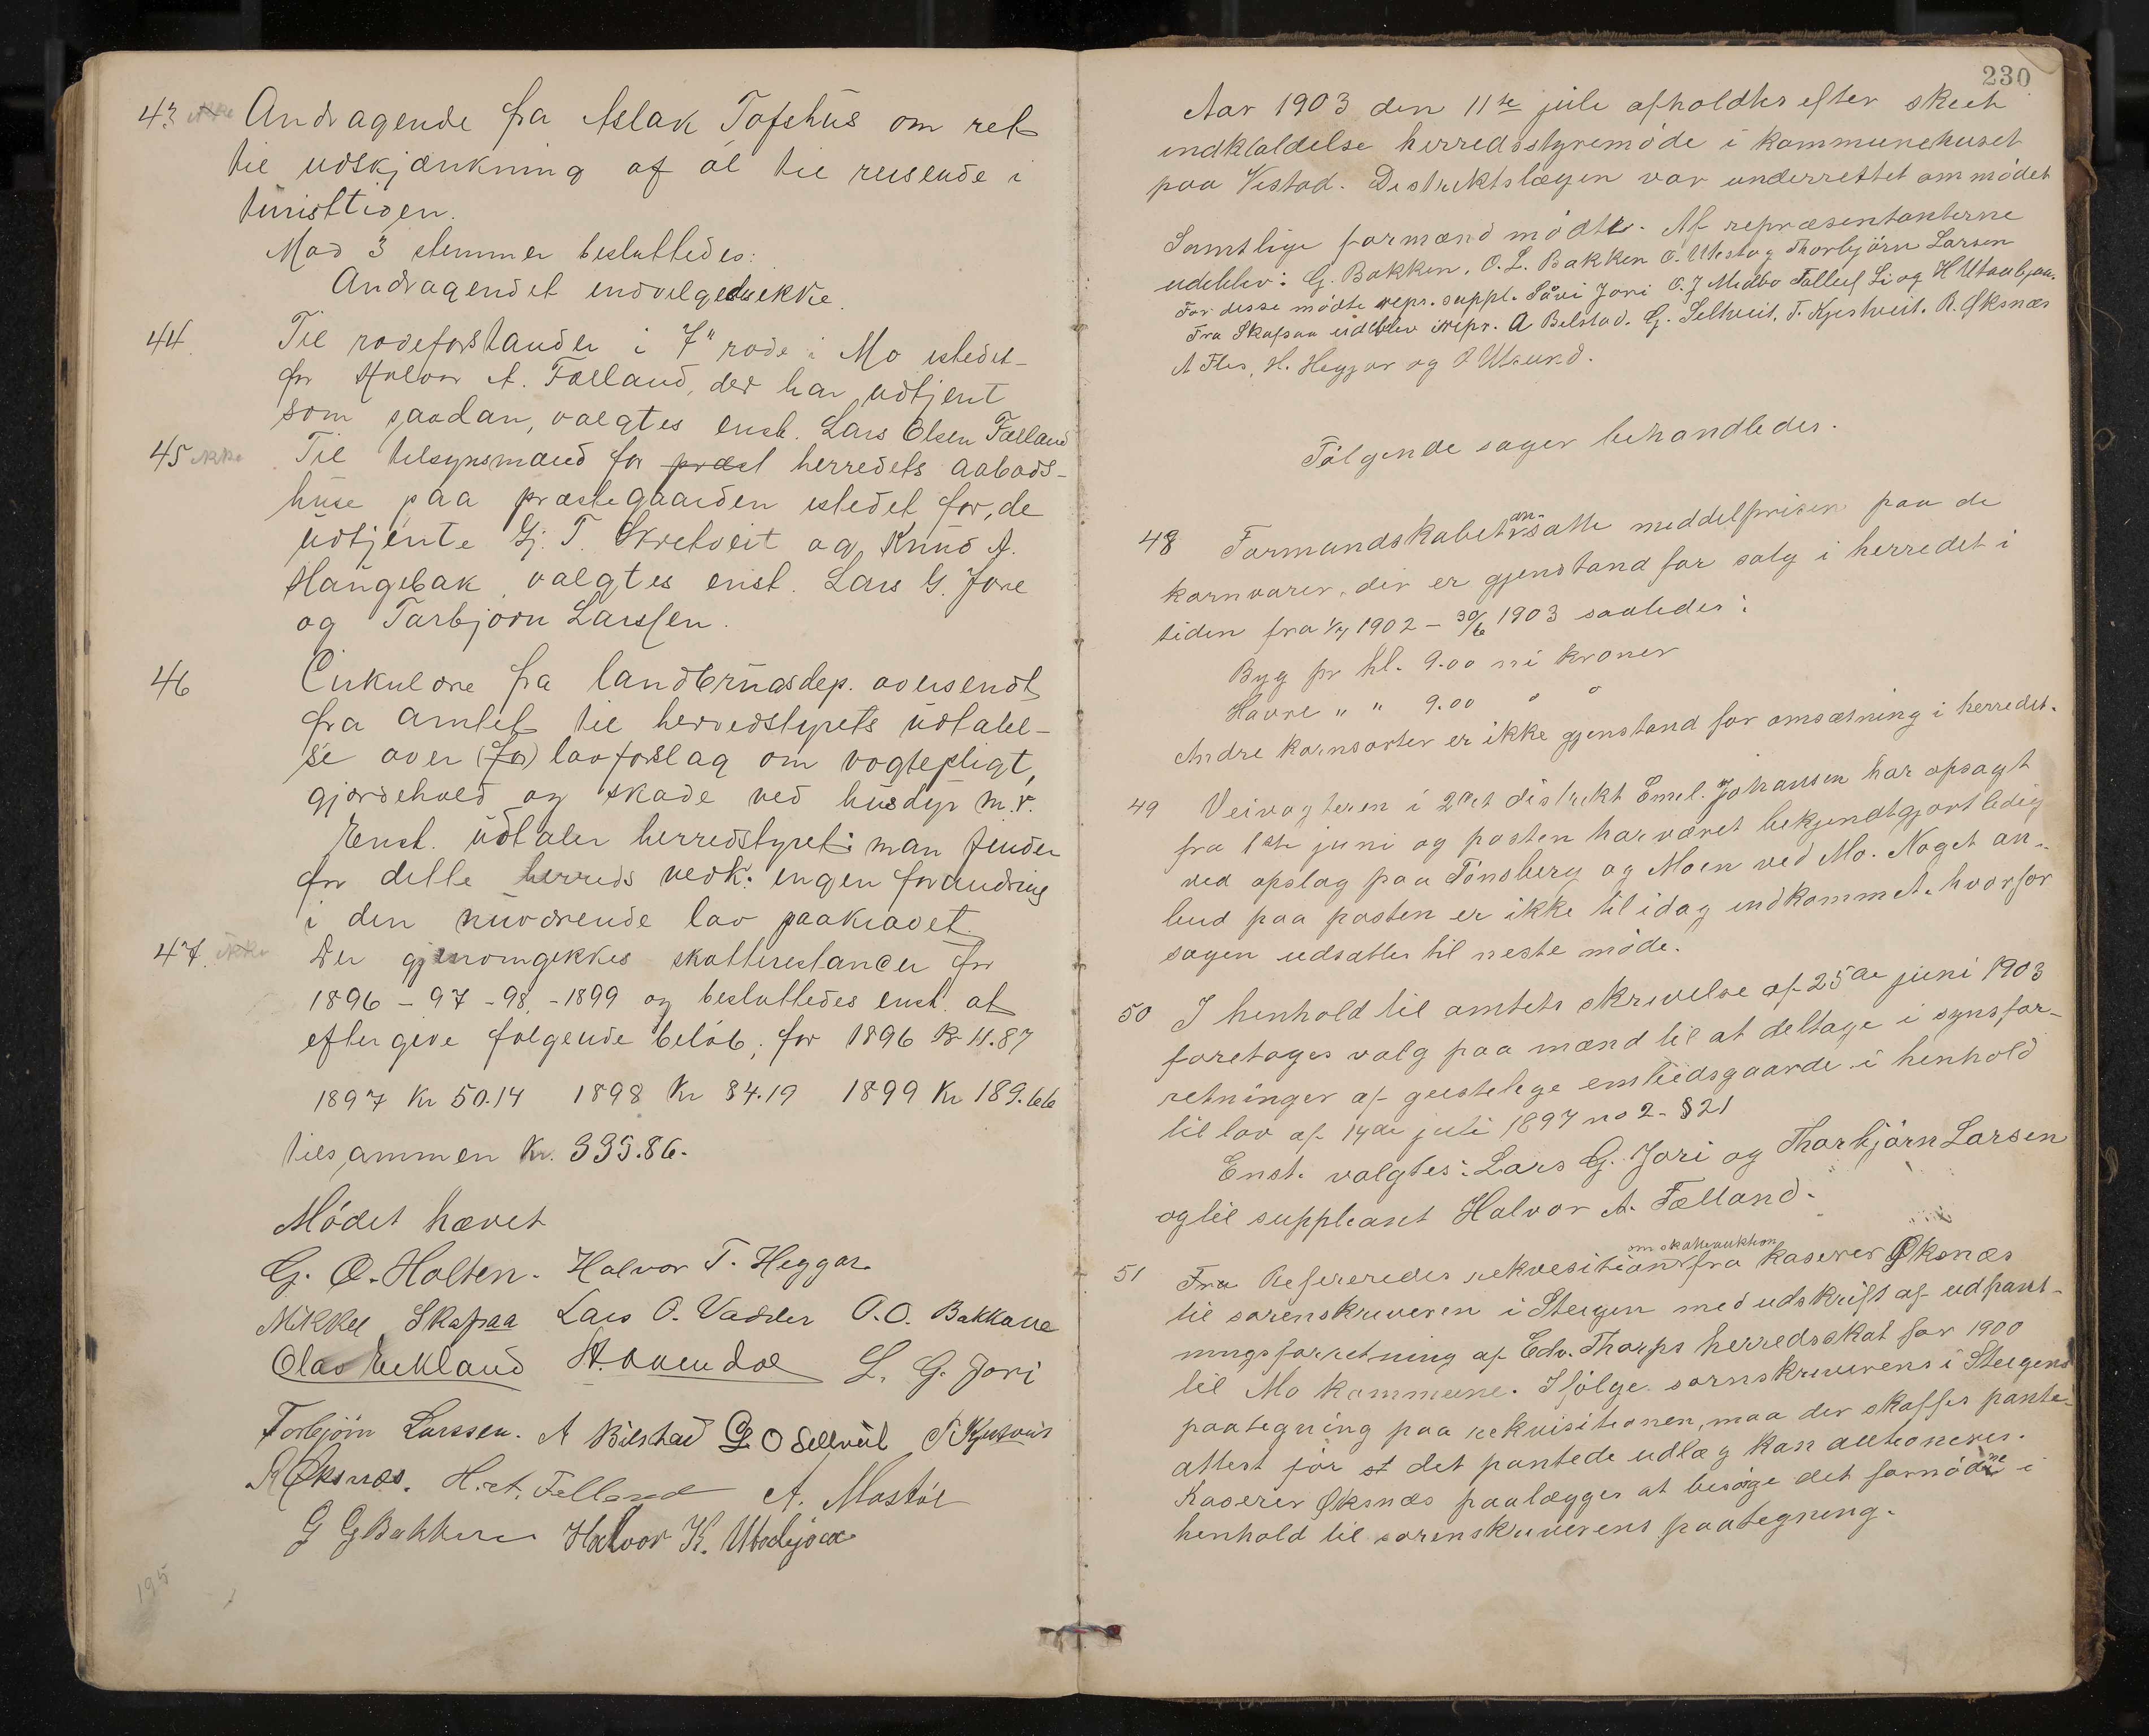 43 ikke Andragende fra Aslak Tofshus om ret
til udskjænkning af øl til reisende i
turisttiden.
Mod 3 stemmer besluttedes:
Andragendet indvilgedes ikke.
44. Til rodeforstander i 7" rode i Mo istedet-
for Halvor A. Fælland, der har udtjent
som saadan, valgtes enst. Lars Olsen Fælland
45 ikke Til tilsynsmænd for præst herredets aabods-
huse paa præstegaarden istedet for, de
udtjente Gj. T. Skretveit og Knud A.
Haugebak valgtes enst. Lars G. Jore
og Tarbjørn Larssen.
46 Cirkulære fra landbrugsdep. oversendt
fra amtet til herredstyrets udtalel-
se over (for) lovforslag om vogtepligt,
gjærdehold og skade ved husdyr m.v.
Enst. udtaler herredstyret: man finder
for dette herreds vedk. ingen forandring
i den nuværende lov paakrævet.
47. ikke Der gjennomgikkes skatterestancer for
1896 - 97 - 98 - 1899 og besluttedes enst. at
eftergive følgende beløb; for 1896 Kr 11.87
1897 Kr 50.14 1898 Kr 84.19 1899 Kr 189.66
tilsammen Kr. 335.86.
Mödet hævet
G. O. Holten. Halvor T. Heggar.
Mikkel Skafsaa Lars O. Vadder O. O. Bakkane
Olav Eikland H. L. G. Jori
Torbjörn Larssen. A Bilstad G O Seltveit T Kjustveit
R Øksnæs. H. A. Felland A. Mostøl
G G Bakken Halvor K. Utabjaa
195
230
Aar 1903 den 11te juli afholdtes efter skeet
indkaldelse herredsstyremöde i kommunehuset
paa Vistad. Distriktslægen var underrettet om mödet
Samtlige formænd mödte. Af repræsentanterne
udeblev: G. Bakken, O. L. Bakken O. Utistog Thorbjörn Larsen
For disse mödte repr. suppl. Såvi Jori O. J Midbø Tallef Li og H Utaabjaa.
Fra Skafsaa udeblev repr. A Bilstad. G. Seltveit, T. Kjustveit. R. Øksnæs
A Flis, H. Heggar og O Utsund.
Fölgende sager behandledes.
48 Formandskabet ansatte middelprisen paa de
kornvarer, der er gjenstand for salg i herredet i
tiden fra 1/7 1902 - 30/6 1903 saaledes:
Byg pr hl. 9.00 ni kroner
Havre " " 9.00 " "
Andre kornsorter er ikke gjenstand for omsætning i herredet.
49 Veivogteren i 2det distrikt Emil. Johansen har opsagt
fra 1ste juni og posten har været bekjendtgjort ledig
ved opslag paa Tönsberg og Moen ved Mo. Noget an-
bud paa posten er ikke til idag indkommet. hvorfor
sagen udsattes til neste möde.
50 I henhold til amtets skrivelse af 25de juni 1903
foretoges valg paa mænd til at deltage i synsfor-
retninger af geistelige embedsgaarde i henhold
til lov af 14de juli 1897 no 2 - § 21
Enst. valgtes: Lars G. Jori og Thorbjörn Larsen
og til suppleant Halvor A. Fælland.
51 Fra Refereredes rekvesition om skatteauktion fra kaserer Øksnæs
til sorenskriveren i Steigen med udskrift af udpant-
ningsforretning af Edv. Thorps herredsskat for 1900
til Mo kommune. Ifölge sornskriverens i Steigens
paategning paa rekvisitionen, maa der skaffes pante-
attest för at det pantede udlæg kan auktioneres.
Kaserer Øksnæs paalægges at besörge det fornödne i
henhold til sorenskriverens paategning.